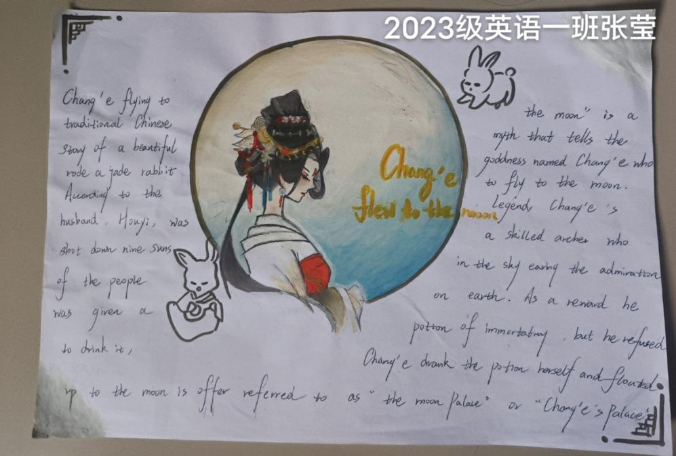 2023级英语一班张莹
Chang'e
flew to the moon
Chang'e flying to the moon" is a
traditional Chinese myth that tells the
story of a beautiful goddess named Chang'e who
rode a jade rabbit to fly to the moon.
According to the legend, Chang'e's
husband, Houyi, was a skilled archer who
shot down nine suns in the sky earing the admiration
of the people on earth. As a reward he
was given a potion of but he refused
to drink it, Chang'e drank the potion herself and floated
up to the moon is offer referred to as "the moon Palace" or "Chang'e's Palace".